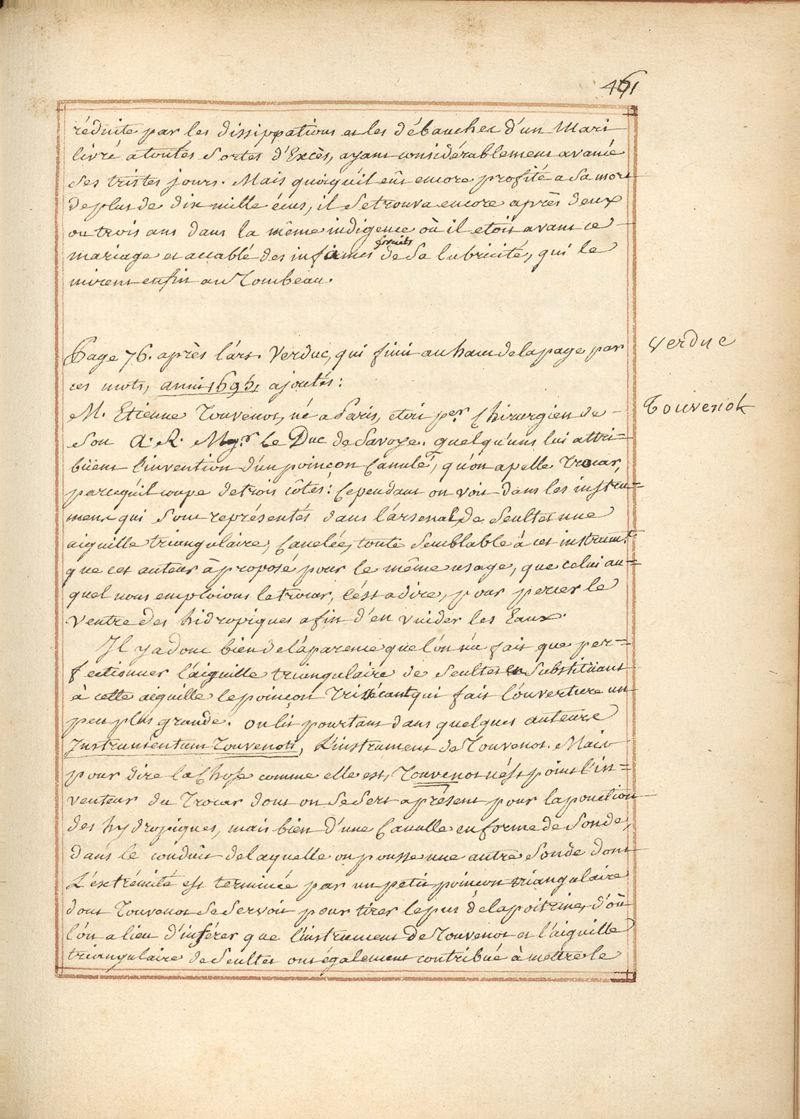 461
réduite par les dissippations et les débauches d'un Mari
livré a toutes sortes d'Excès, ayant considérablement avancé
ses tristes jours. Mais quoiqu'il eût encore profité a sa mort
de plus de dix mille écus, il se trouva encore après deux
ou trois ans dans la même indigence où il etoit avant ce
mariage et accablé des infirmités de sa lubricité, qui le
mirent enfin au Tombeau.
Page 76. après l'art. Verduc, qui finit au haut de la page par
ces mots, anni 1696, ajoutés:
M. Etienne Touvenot, né a Paris, etoit per. Chirurgien de
Son A. R. Mgr. Le Duc de Savoye. quelqu'uns lui attri-
büent l'invention d'un poinçon Canulé, qu'on apelle Trocar,
parcequ'il coupe de trois côtés: Cependant on voit dans les instru-
mens qui sont représentés dans l'arsenal de Scultet une
aiguille triangulaire, Canelée, toute semblable à cet instrumt.
que cet auteur à proposé pour le même usage, que celui au-
quel nous emploions le trocar, C'ést a dire, pour percer le
Ventre des hidropiques afin d'en vuider les Eaux.
Il y a donc bien de l'aparence que l'on n'a fait que per-
fectionner l'aiguille triangulaire de Scultet en Substituant
à cette aiguille le poinçon Trisecant qui fait l'ouverture un
peu plus grande. on lit pourtant dans quelques auteurs
Instrumentum Touvenoti, L'instrument de Touvenot. Mais
pour dire la Chose comme elle est, Touvenot n'ést point l'in-
venteur du Trocar dont on se sert aprésent pour la ponction
des hydropiques, mais bien d'une Canulle en forme de Sonde,
dans le conduit de laquelle on pousse une autre Sonde dont
L'extrémité est terminée par un petit poinçon triangulaire
dont Touvenot se servoit pour tirer le pus de la poitrine, d'où
l'on a lieu d'inférer que l'instrument de Touvenot et l'aiguille
triangulaire de Scultet ont également contribué à mettre le
Verduc
Touvenot